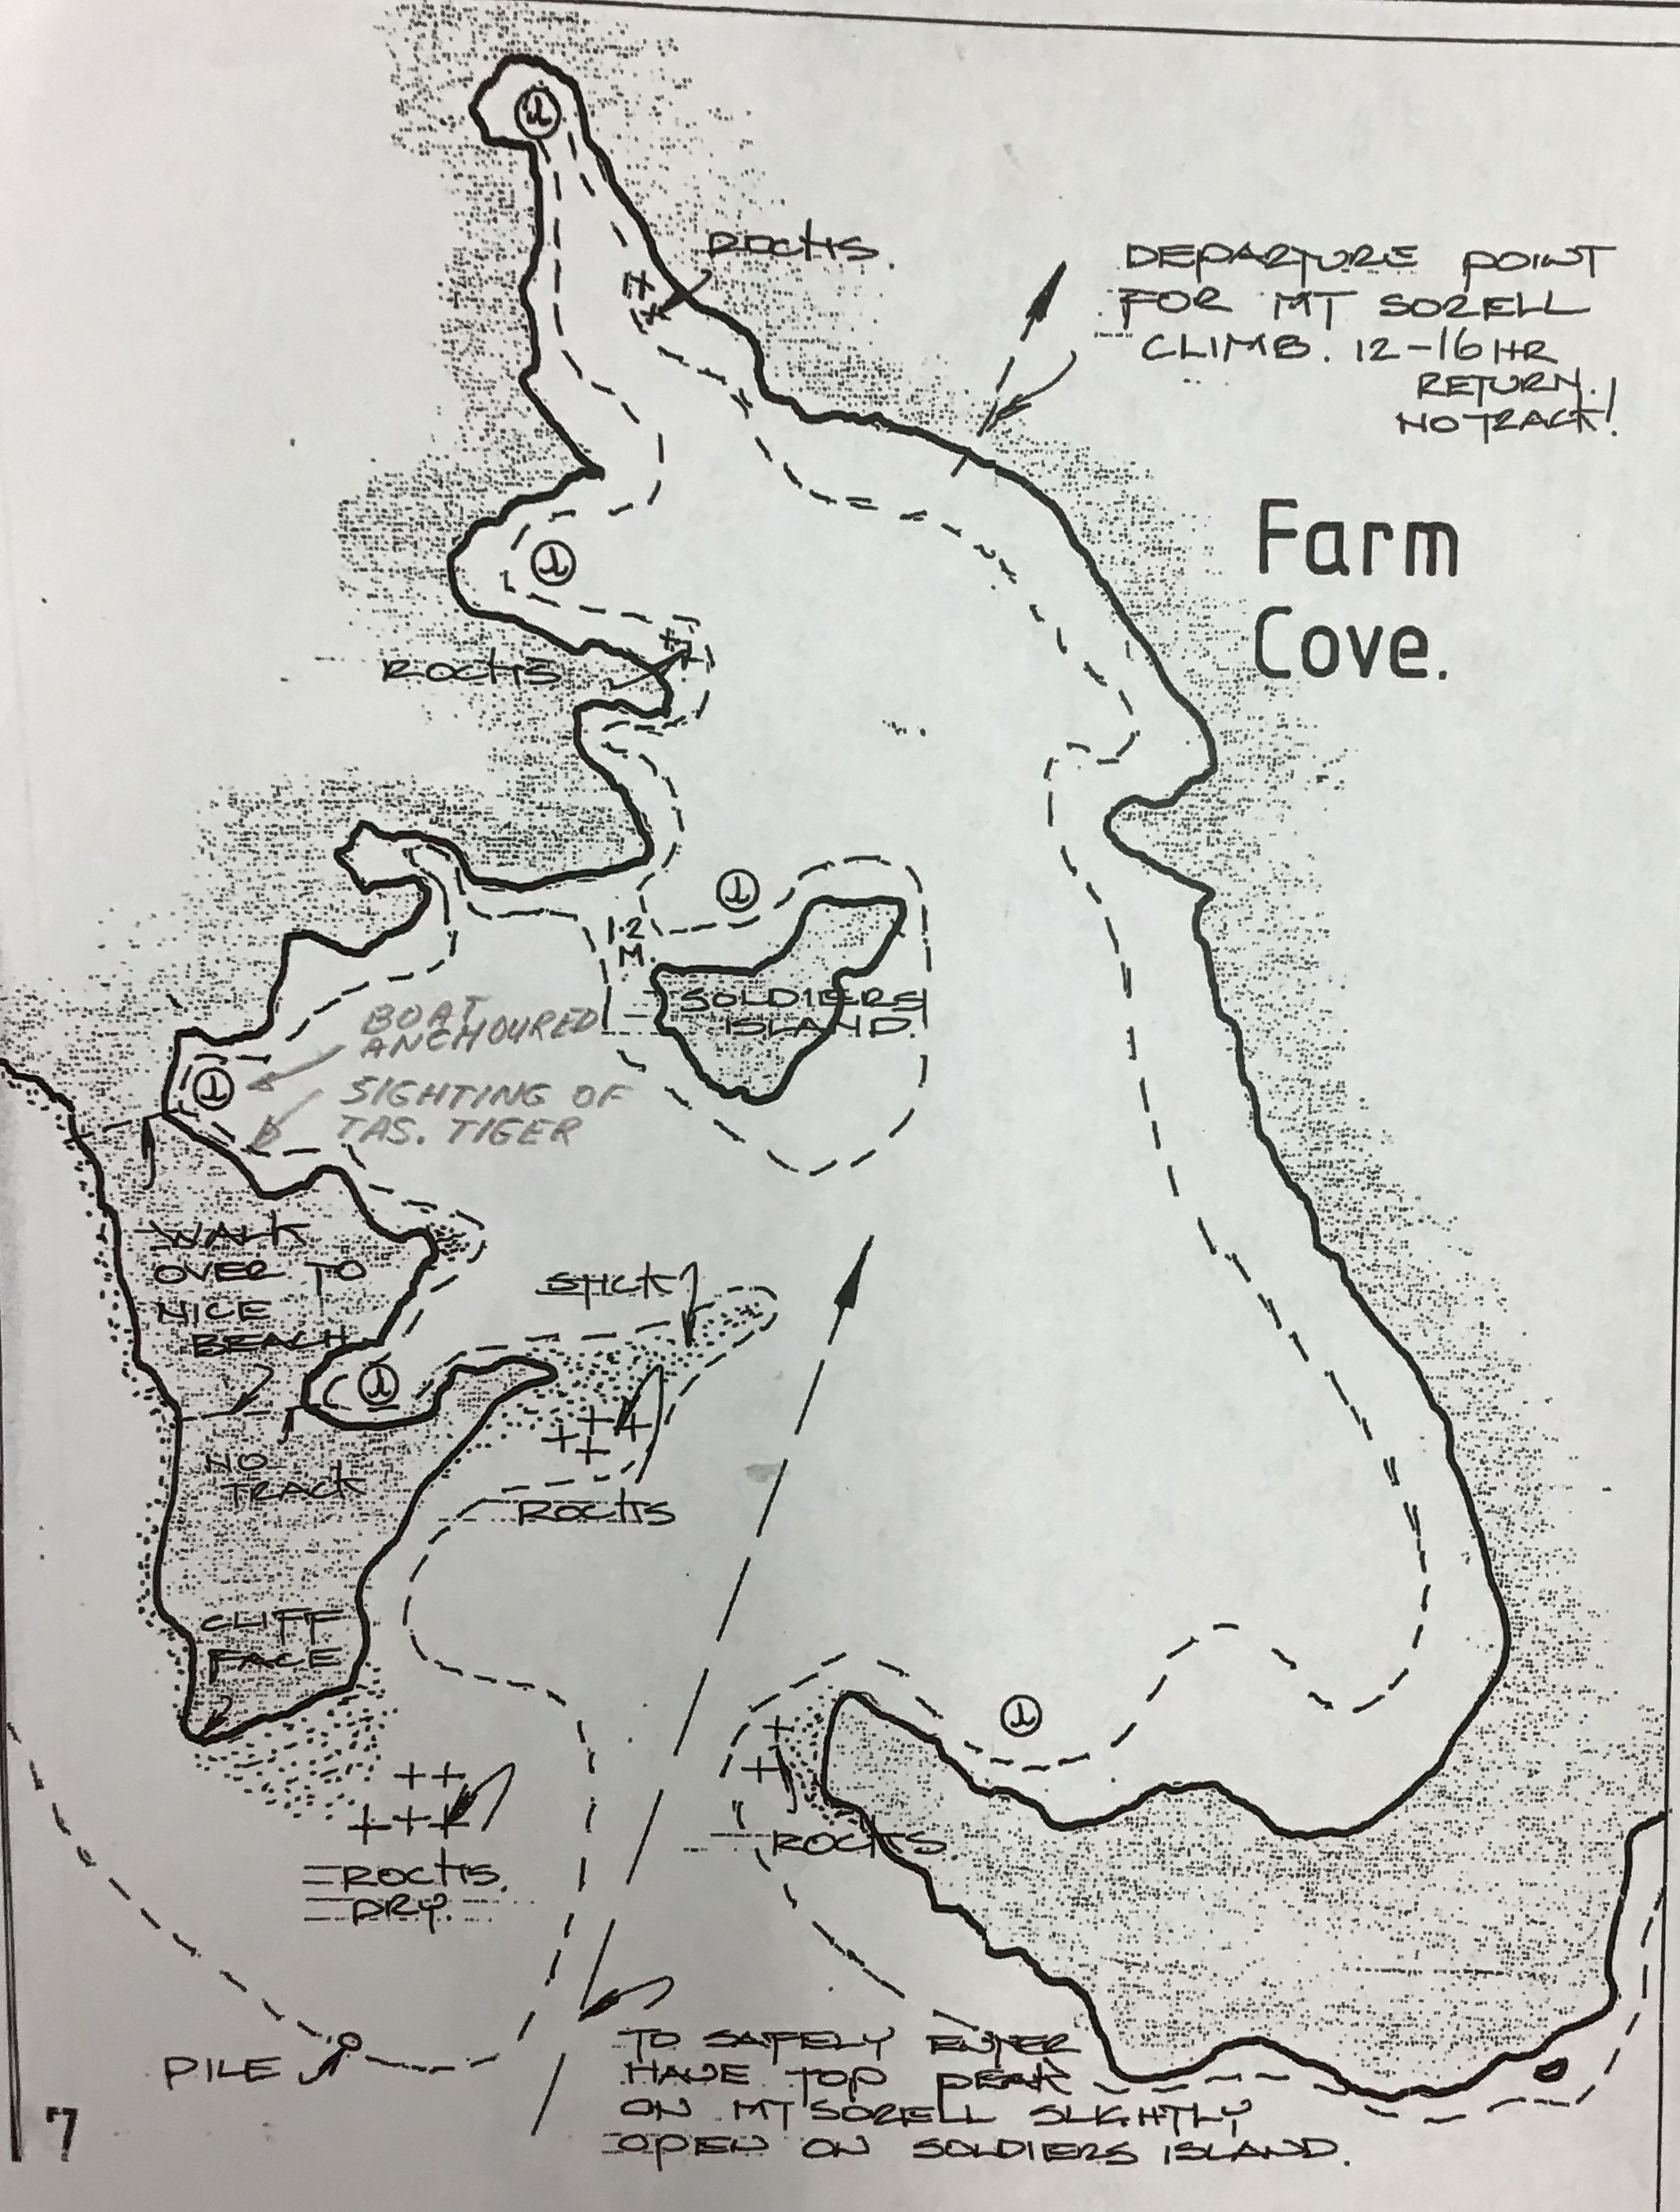 ROCKS.
DEPARTURE POINT
FOR MT SORELL
CLIMB. 12-16 HR
RETURN.
NO TRACK!
Farm
Cove.
ROCKS
1.2
M.
SOLDIERS
ISLAND.
BOAT
ANCHOURED
SIGHTING OF
TAS. TIGER
WALK
OVER TO
NICE
BEACH
STICK
NO
TRACK
ROCKS
CLIFF
FACE
ROCKS.
ROCKS.
DRY.
PILE
TO SAFELY ENTER
HAVE TOP PEAK
ON MT SORELL SLIGHTLY
OPEN ON SOLDIERS ISLAND.
7